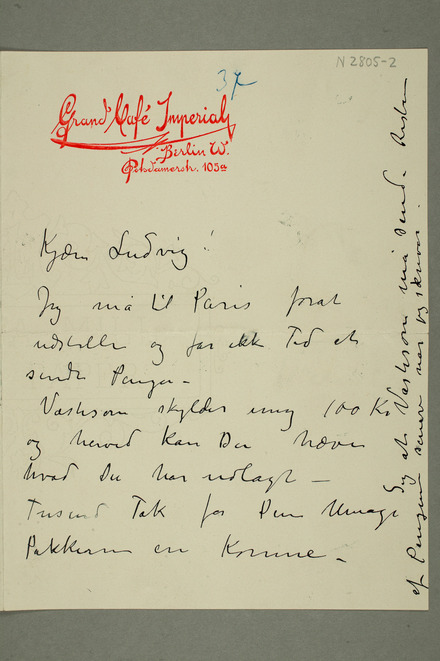 N 2805-2
37
Grand Café Imperial
Berlin W.
Potsdamerstr. 103a
Kjære Ludvig!
Jeg må til Paris forat
udstille og får ikk Tid at
sende Penger –
Vestesom skylder mig 100 Kr
og herved kan Du hæve
hvad Du har udlagt –
Tusend Tak for Din Umage
Pakkerne er Komne –
Sig at må sende Resten
af Pengene senere når jeg skriver.